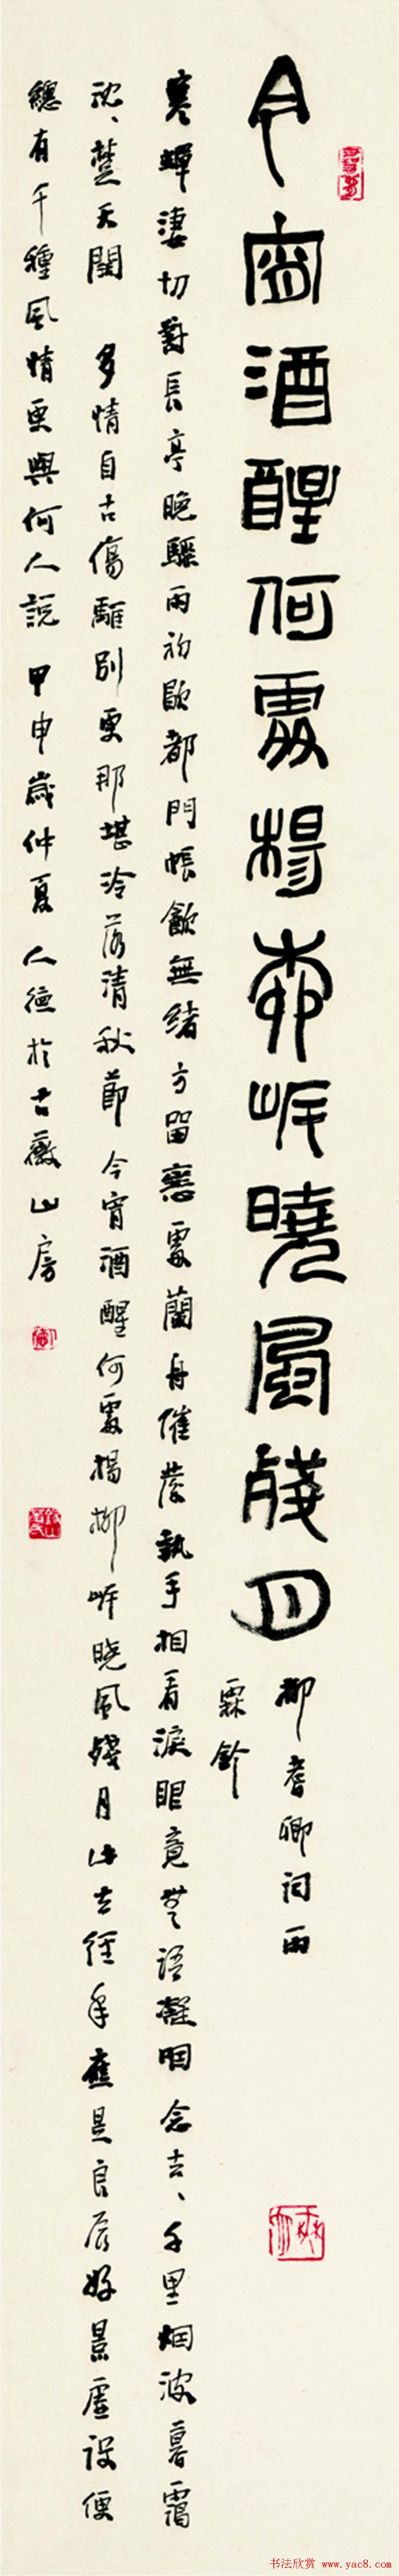 今宵酒醒何處楊柳岸曉風殘月
柳耆卿詞雨
霖鈴
寒蟬淒切對長亭晚驟雨初歇都門帳飲無緒方留戀處蘭舟催發執手相看淚眼竟無語凝咽念去、千里烟波暮靄
沈、楚天闊 多情自古傷離別更那堪冷落清秋節 今宵酒醒何處楊柳岸曉風殘月此去經年應是良辰好景虛設便
總有千種風情更與何人說 甲申歲仲夏 人德於古薇山房
书法欣赏 www.yac8.com